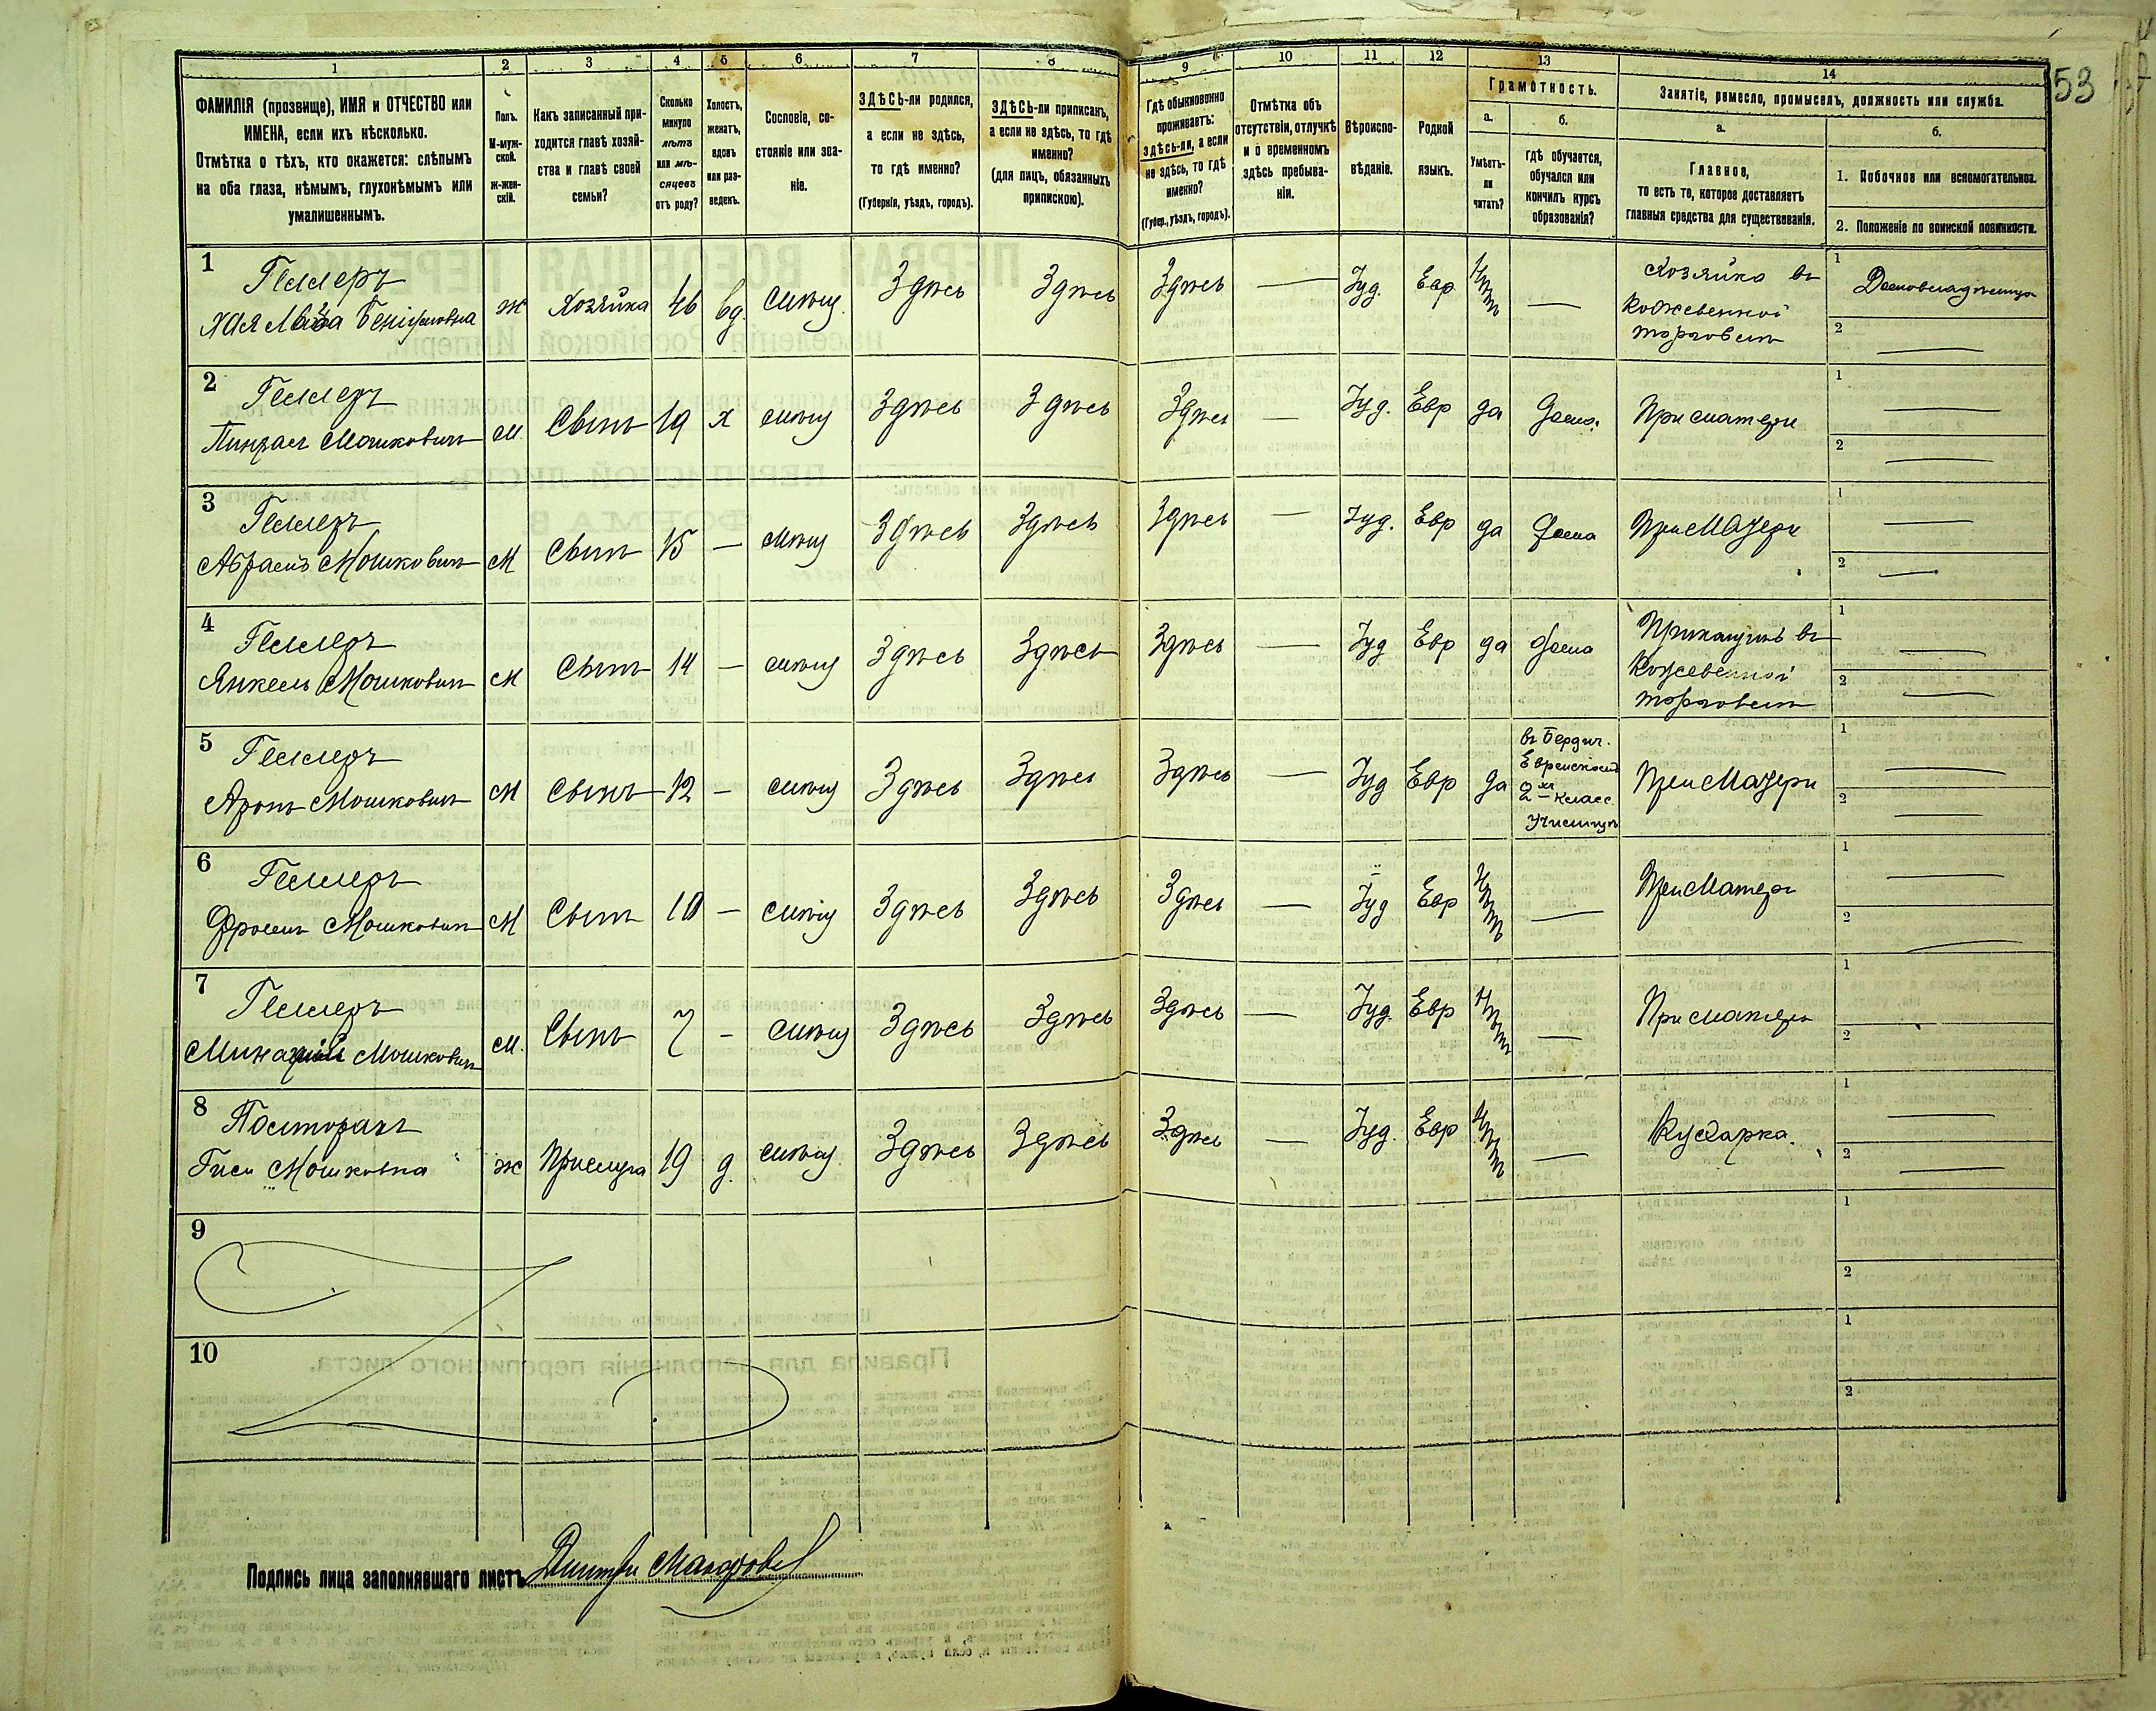 53
1 2 3 4 5 6 7 8 9 10 11 12 13 14
ФАМИЛІЯ (прозвище), ИМЯ и ОТЧЕСТВО или
ИМЕНА, если ихъ нѣсколько.
Отмѣтка о тѣхъ, кто окажется: слѣпымъ
на оба глаза, нѣмымъ, глухонѣмымъ или
умалишеннымъ.
Полъ.
М-муж-
ской.
Ж-жен-
скій.
Какъ записанный при-
ходится главѣ хозяй-
ства и главѣ своей
семьи?
Сколько
минуло
лѣтъ
или мѣ-
сяцевъ
отъ роду?
Холостъ,
женатъ,
вдовъ
или раз-
веденъ.
Сословіе, со-
стояніе или зва-
ніе.
ЗДѢСЬ-ли родился,
а если не здѣсь,
то гдѣ именно?
(Губернія, уѣздъ, городъ).
ЗДѢСЬ-ли приписанъ,
а если не здѣсь, то гдѣ
именно?
(для лицъ, обязанныхъ
припискою).
Гдѣ обыкновенно
проживаетъ:
здѣсь-ли, а если
не здѣсь, то гдѣ
именно?
(Губер., уѣздъ, городъ).
Отмѣтка объ
отсутствіи, отлучкѣ
и о временномъ
здѣсь пребыва-
ніи.
Вѣроиспо-
вѣданіе.
Родной
языкъ.
Грамотность.
а.
Умѣетъ-
ли
читать?
б.
гдѣ обучается,
обучался или
кончилъ курсъ
образованія?
Занятіе, ремесло, промыселъ, должность или служба.
а.
Главное,
то есть то, которое доставляетъ
главныя средства для существованія.
б.
1. Побочное или вспомогательное.
2. Положеніе по воинской повинности.
1
Геллеръ
Хая
ж Хозяйка 46 вд. Здѣсь Здѣсь Здѣсь — Іуд. Евр нѣтъ —
Хозяйка въ
кожевенной
торговлѣ
1 Домовладѣлица
2 —
2
Геллеръ
Мошковичъ
м. Сынъ 19 х Здѣсь Здѣсь Здѣсь — Іуд. Евр да дома. При матери
1 —
2 —
3
Геллеръ
Абрамъ Мошковичъ
м Сынъ 15 — Здѣсь Здѣсь Здѣсь — Іуд. Евр да дома При матери
1 —
2 —
4
Геллеръ
Янкель Мошковичъ
м Сынъ 14 — Здѣсь Здѣсь Здѣсь — Іуд Евр да дома
Прикащикъ въ
кожевенной
торговлѣ
1 —
2 —
5
Геллеръ
Аронъ Мошковичъ
м Сынъ 12 — Здѣсь Здѣсь Здѣсь — Іуд Евр да
въ Бердич.
Еврейскомъ
2хъ класс.
Училищѣ
При матери
1 —
2 —
6
Геллеръ
Фроимъ Мошковичъ
м Сынъ 10 — Здѣсь Здѣсь Здѣсь — Іуд Евр нѣтъ — При матери
1 —
2 —
7
Геллеръ
Мошковичъ
м. Сынъ 7 — Здѣсь Здѣсь Здѣсь — Іуд. Евр нѣтъ — При матери
1
2
8
Мошковна
ж Прислуга 19 д. Здѣсь Здѣсь Здѣсь — Іуд. Евр нѣтъ — Кухарка.
1 —
2 —
9
1
2
10
1
2
Подпись лица заполнявшаго листъ